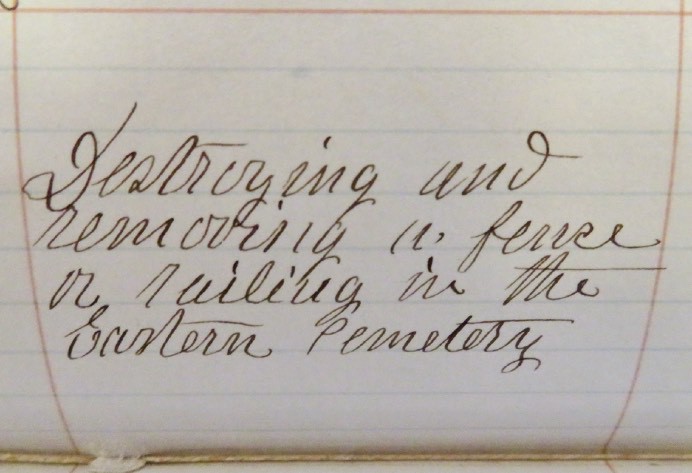 Destroying and
removing a fence
or railing in the
Eastern Cemetery